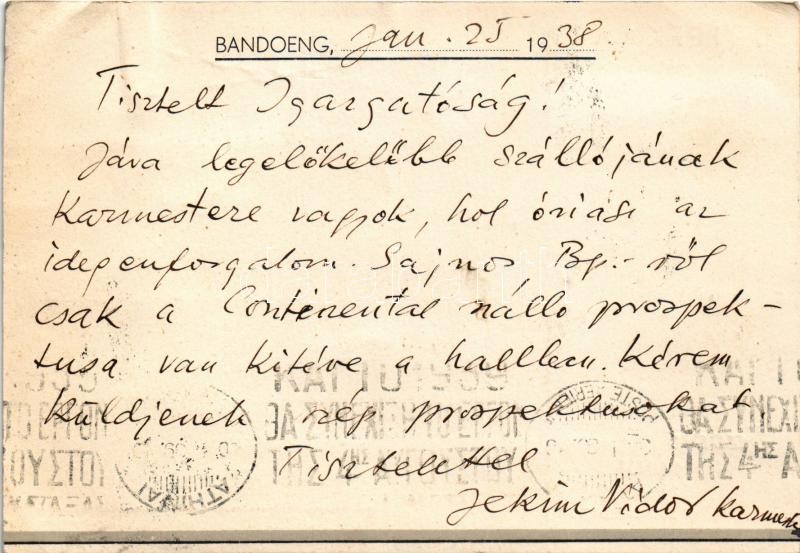 BANDOENG, Jan. 25 1938
Tisztelt Igazgatóság!
Jáva legelőkelőbb szállójának
Karmestere vagyok, hol óriási az
idegenforgalom. Sajnos, Bp.-ről
csak a Continental szálló prospek-
tusa van kitéve a hallban. Kérem
küldjenek szép prospektusokat.
Tisztelettel
Jekim Vidor karmester
ΚΑΙ ΤΟ 1939
ΘΑ ΣΥΝΕΧΙΣΗ ΤΟ ΕΡΓΟΝ
ΤΗΣ 4ΗΣ ΑΥΓΟΥΣΤΟΥ
ATHINAI